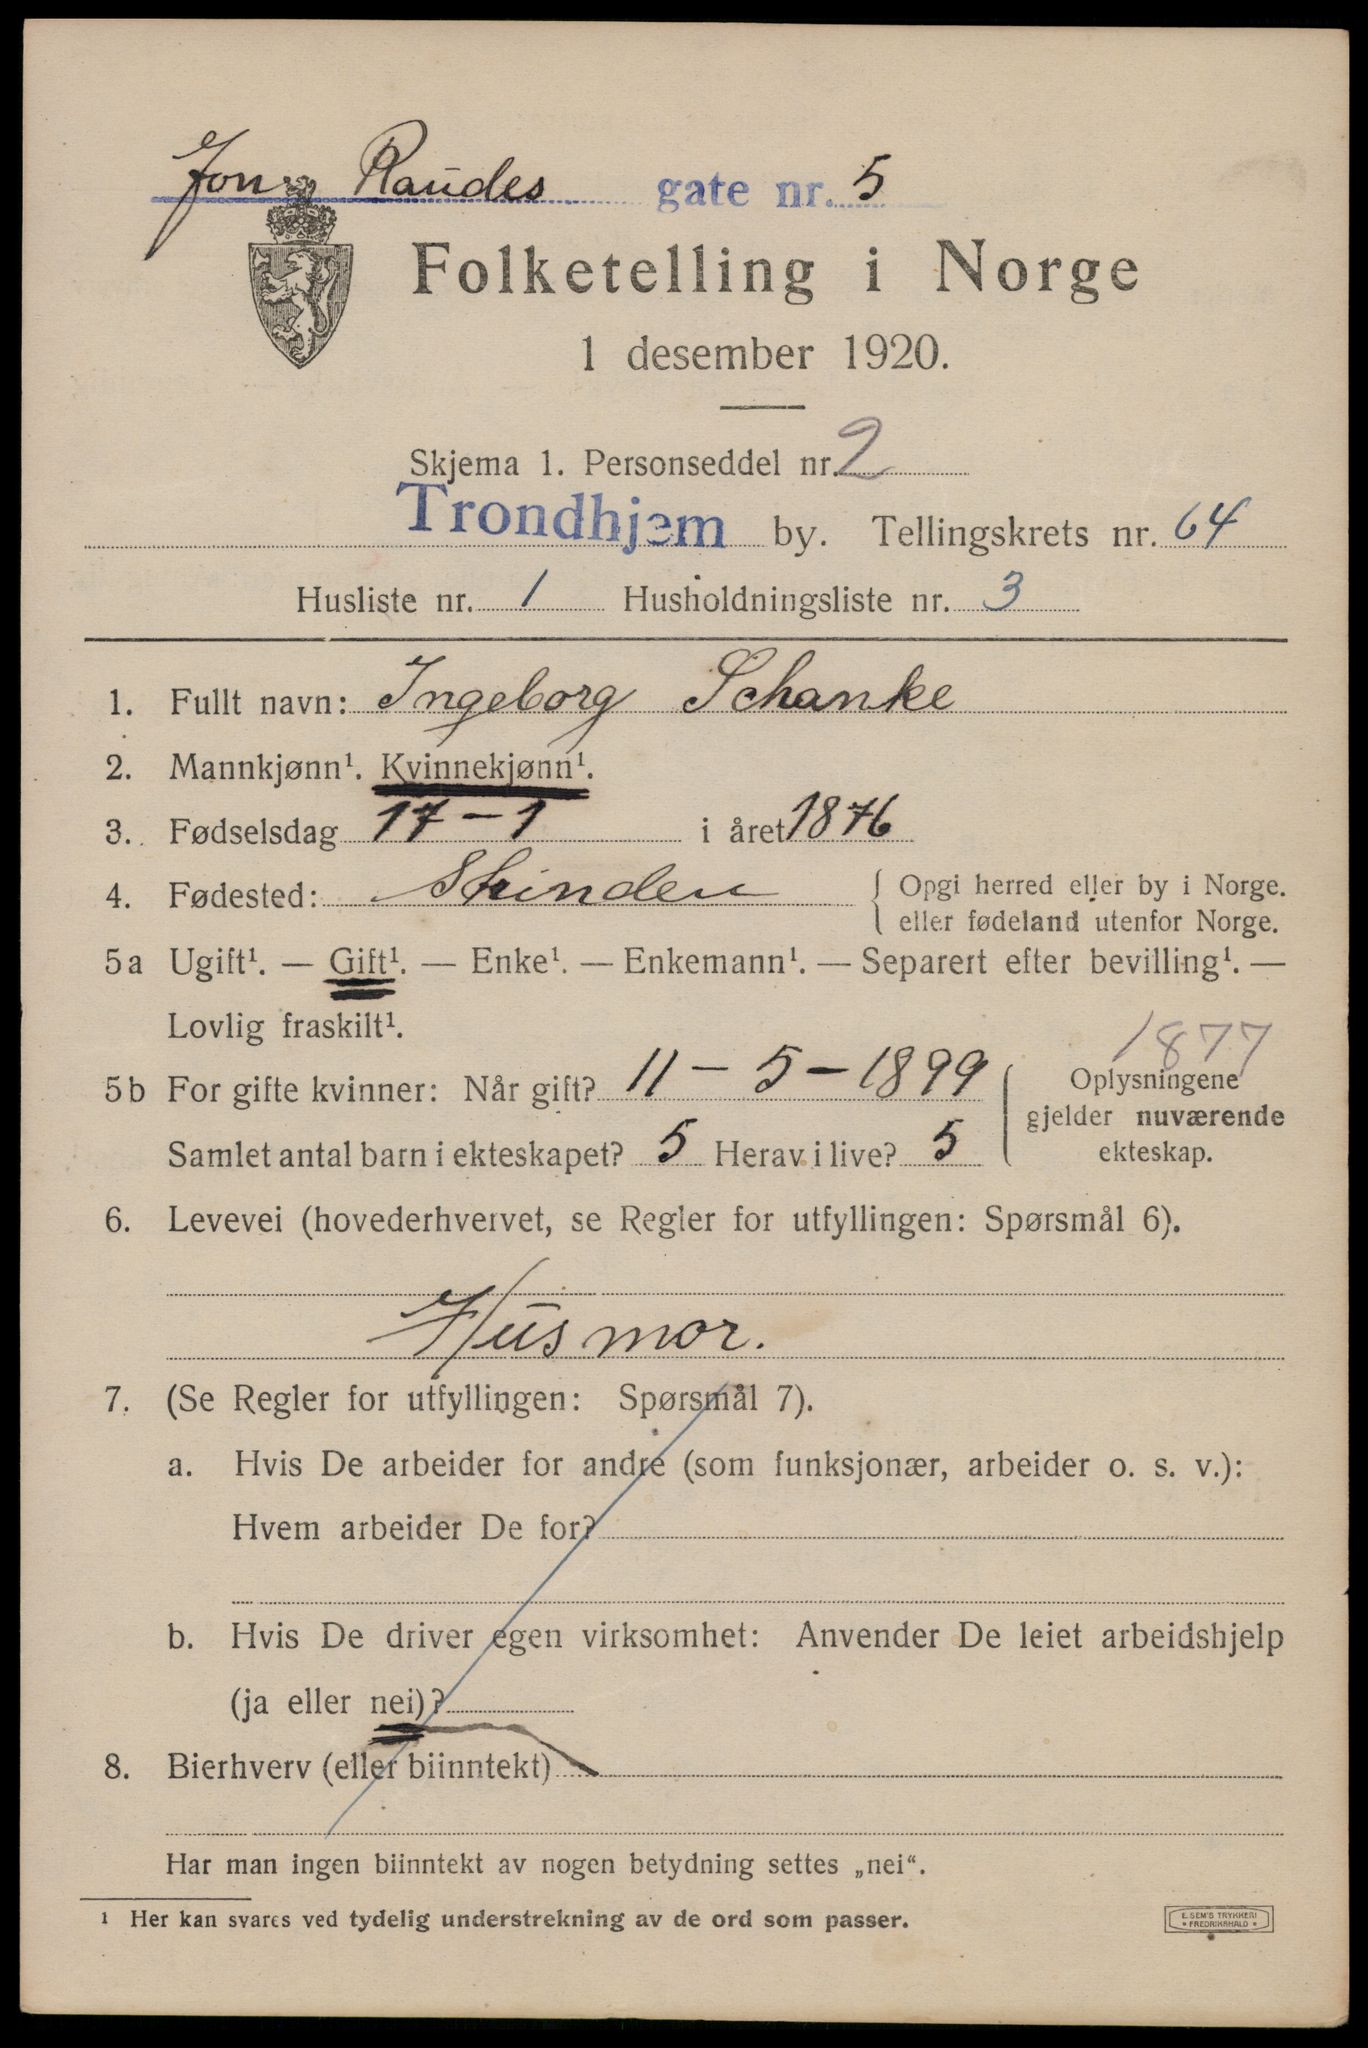 Jon Raudes gate nr. 5
Folketelling i Norge
1 desember 1920.
Skjema 1. Personseddel nr. 2
Trondhjem by. Tellingskrets nr. 64
Husliste nr. 1 Husholdningsliste nr. 3
1. Fullt navn: Ingeborg Schanke
2. Mannkjønn¹. Kvinnekjønn¹.
3. Fødselsdag 17 - 1 i året 1876
4. Fødested: Strinden { Opgi herred eller by i Norge.
eller fødeland utenfor Norge.
5a Ugift¹. — Gift¹. — Enke¹. — Enkemann¹. — Separert efter bevilling¹. —
Lovlig fraskilt¹.
1877
5b For gifte kvinner: Når gift? 11 - 5 - 1899
Samlet antal barn i ekteskapet? 5 Herav i live? 5
Oplysningene
gjelder nuværende
ekteskap.
6. Levevei (hovederhvervet, se Regler for utfyllingen: Spørsmål 6).
Husmor.
7. (Se Regler for utfyllingen: Spørsmål 7).
a. Hvis De arbeider for andre (som funksjonær, arbeider o. s. v.):
Hvem arbeider De for?
b. Hvis De driver egen virksomhet: Anvender De leiet arbeidshjelp
(ja eller nei)?
8. Bierhverv (eller biinntekt)
Har man ingen biinntekt av nogen betydning settes „nei“.
¹ Her kan svares ved tydelig understrekning av de ord som passer.
E. SEM'S TRYKKERI
• FREDRIKSHALD •